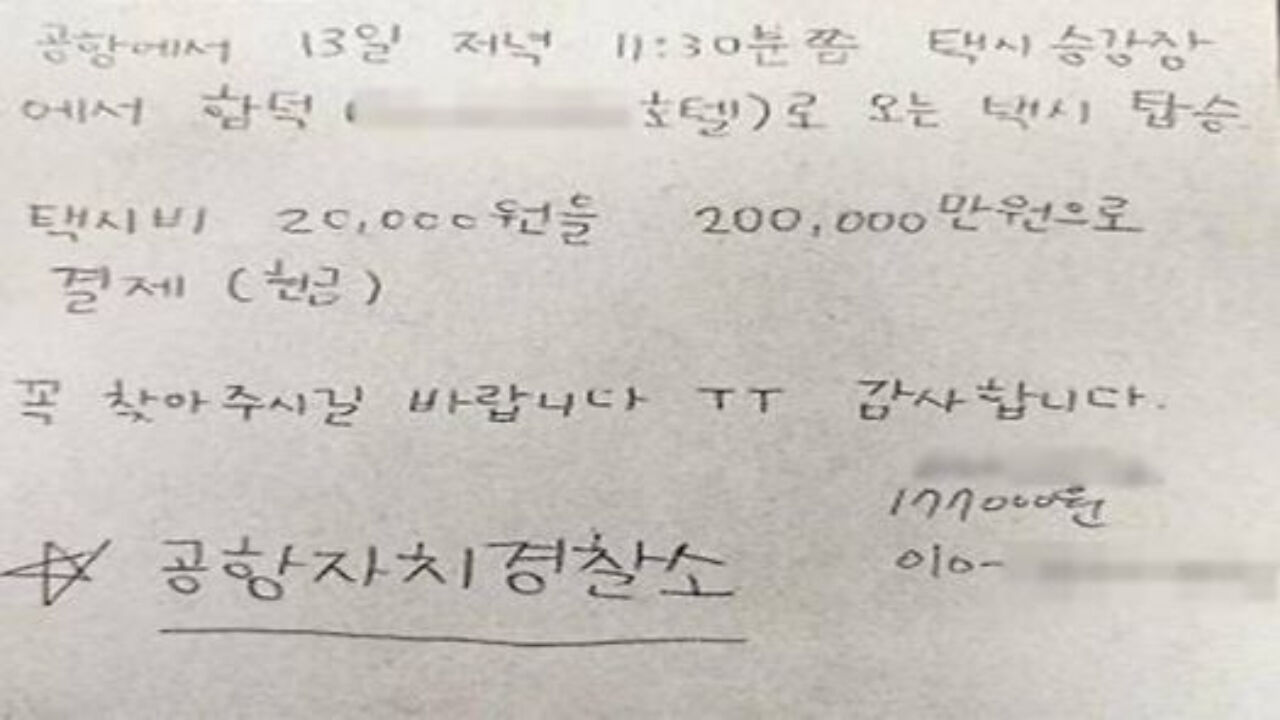 공항에서 13일 저녁 11:30분쯤 택시 승강장
에서 함덕 ( 호텔)로 오는 택시 탑승.
택시비 20,000원을 200,000만원으로
결제 (현금)
꼭 찾아주시길 바랍니다 ㅜㅜ 감사합니다.
177000원
010-
☆ 공항자치경찰소